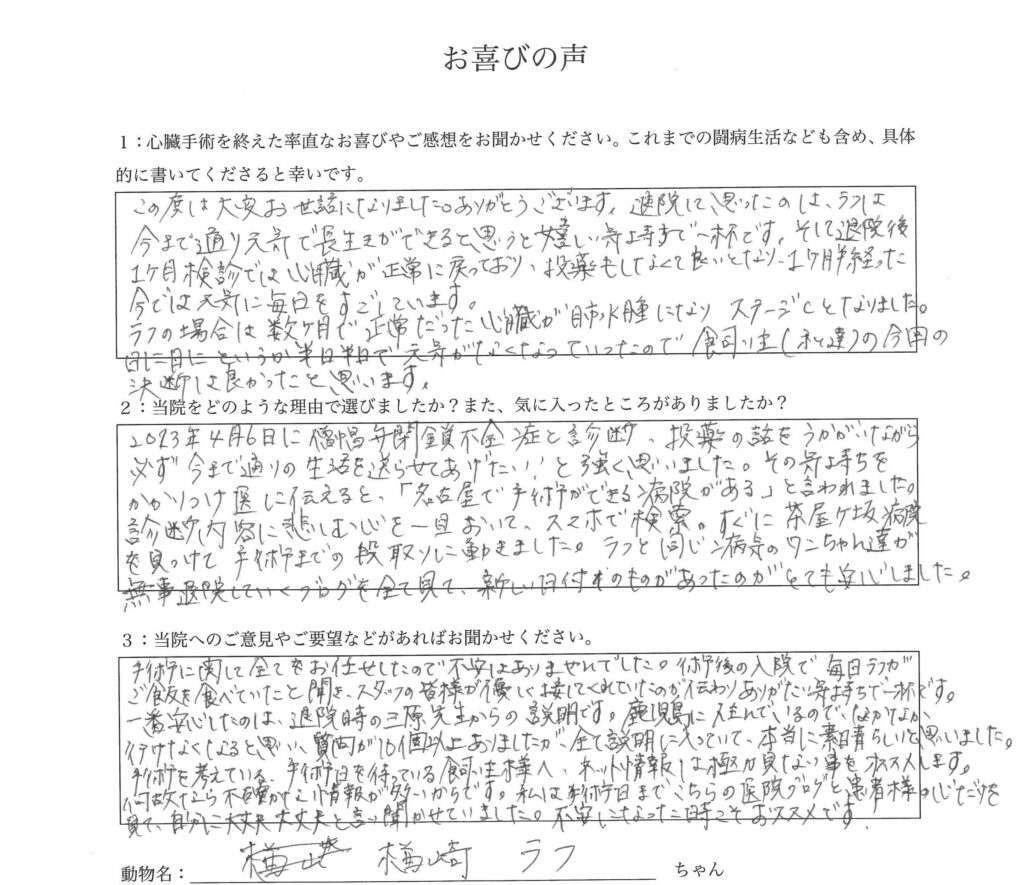 お喜びの声
1：心臓手術を終えた率直なお喜びやご感想をお聞かせください。これまでの闘病生活なども含め、具体
的に書いてくださると幸いです。
この度は大変お世話になりました。ありがとうございます。退院して思ったのは、ラフは
今まで通り元気で長生きができると思うと嬉しい気持ちで一杯です。そして退院後
1ヶ月検診では心臓が正常に戻っており、投薬もしなくて良いとなり、1ヶ月半経った
今では元気に毎日をすごしています。
ラフの場合は数ヶ月で正常だった心臓が肺水腫になりステージCとなりました。
日に日にというか半日半日で元気がなくなっていったので飼い主(私達)の今回の
決断は良かったと思います。
2：当院をどのような理由で選びましたか？また、気に入ったところがありましたか？
2023年4月6日に僧帽弁閉鎖不全症と診断、投薬の話をうかがいながら
必ず今まで通りの生活を送らせてあげたい!と強く思いました。その気持ちを
かかりつけ医に伝えると、「名古屋で手術ができる病院がある」と言われました。
診断内容に悲しむ心を一旦おいて、スマホで検索。すぐに茶屋ヶ坂病院
を見つけて手術までの段取りに動きました。ラフと同じ病気のワンちゃん達が
無事退院していくブログを全て見て、新しい日付けのものがあったのがとても安心しました。
3：当院へのご意見やご要望などがあればお聞かせください。
手術に関して全てをお任せしたので不安はありませんでした。術後の入院で毎日ラフが
ご飯を食べていたと聞き、スタッフの皆様が優しく接してくれていたのが伝わりありがたい気持ちで一杯です。
一番安心したのは、退院時の三原先生からの説明です。鹿児島に住んでいるので、なかなか
行けなくなると思い、質問が10個以上ありましたが、全て説明に入っていて、本当に素晴らしいと思いました。
手術を考えている、手術日を待っている飼い主様へ、ネット情報は極力見ない事をオススメします。
何故なら不確かな情報が多いからです。私は手術日までこちらの医院ブログと患者様の心だけを
見て、自分に大丈夫大丈夫と言い聞かせていました。不安になった時こそおススメです。
動物名： 楢崎 ラフ ちゃん